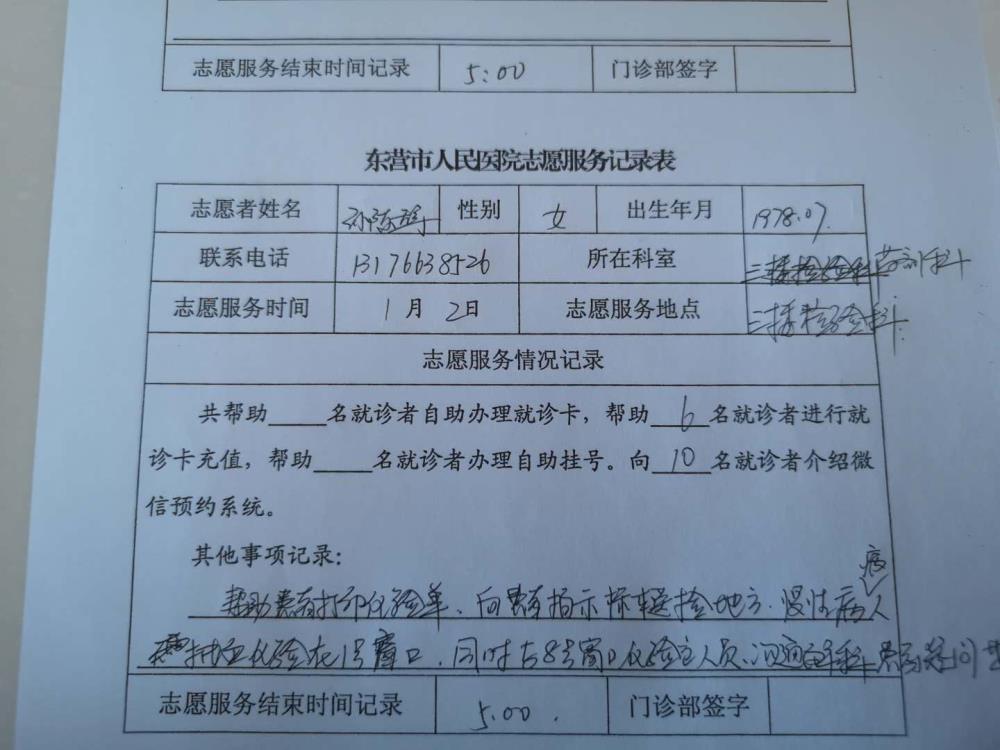 志愿服务结束时间记录 5:00 门诊部签字
东营市人民医院志愿服务记录表
志愿者姓名 孙 性别 女 出生年月 1978.07.
联系电话 13176638526 所在科室 药剂科
志愿服务时间 1月2日 志愿服务地点 三楼检验科.
志愿服务情况记录
共帮助____名就诊者自助办理就诊卡，帮助 6 名就诊者进行就
诊卡充值，帮助____名就诊者办理自助挂号。向 10 名就诊者介绍微
信预约系统。
其他事项记录：
帮助患者打印化验单、向患者指示标本送检地方. 慢性病人
抽血化验在1号窗口, 同时与8号窗口化验室人员沟通
志愿服务结束时间记录 5:00. 门诊部签字